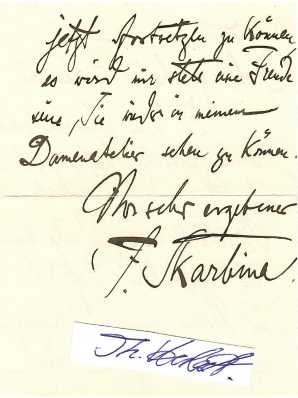 jetzt fortsetzen zu können
es wird mir stets eine Freude
sein, Sie wieder in meinem
Damenatelier sehen zu können.
Ihr sehr ergebener
F. Skarbina.
Th.